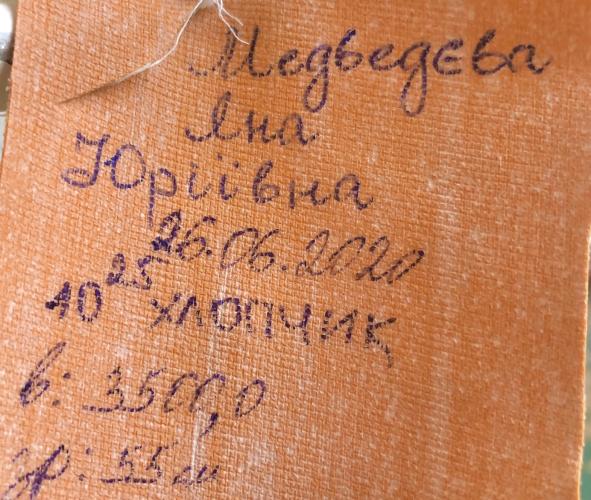 Медведєва
Яна
Юріївна
26.06.2020
10²⁵ ХЛОПЧИК
в: 3500,0
зр: 55 см